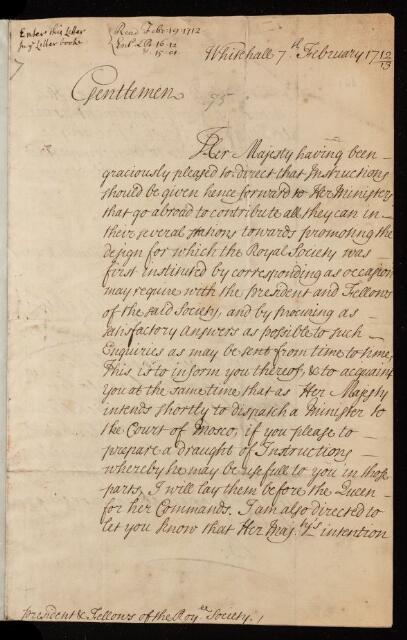 Enter this Letter
in ye Letter booke
Read Febr: 19 1712
Ent. L.B. 16. 12
15. 01
Whitehall 7th February 1712/13
Gentlemen
75
Her Majesty having been
graciously pleased to direct that Instructions
should be given hence forward to Her Ministers
that go abroad to contribute all they can in
their several stations towards promoting the
design for which the Royal Society was
first instituted by corresponding as occasion
may require with the President and Fellows
of the said Society, and by procuring as
satisfactory answers as possible to such
Enquiries as may be sent from time to time,
This is to inform you thereof, & to acquaint
You at the same time that as Her Majesty
intends shortly to dispatch a Minister to
the Court of Mosco, if you please to
prepare a draught of Instructions
whereby he may be usefull to you in those
parts, I will lay them before the Queen
for her Commands. I am also directed to
let you know that Her Maj:tys intention
President & Fellows of the Royll Society /